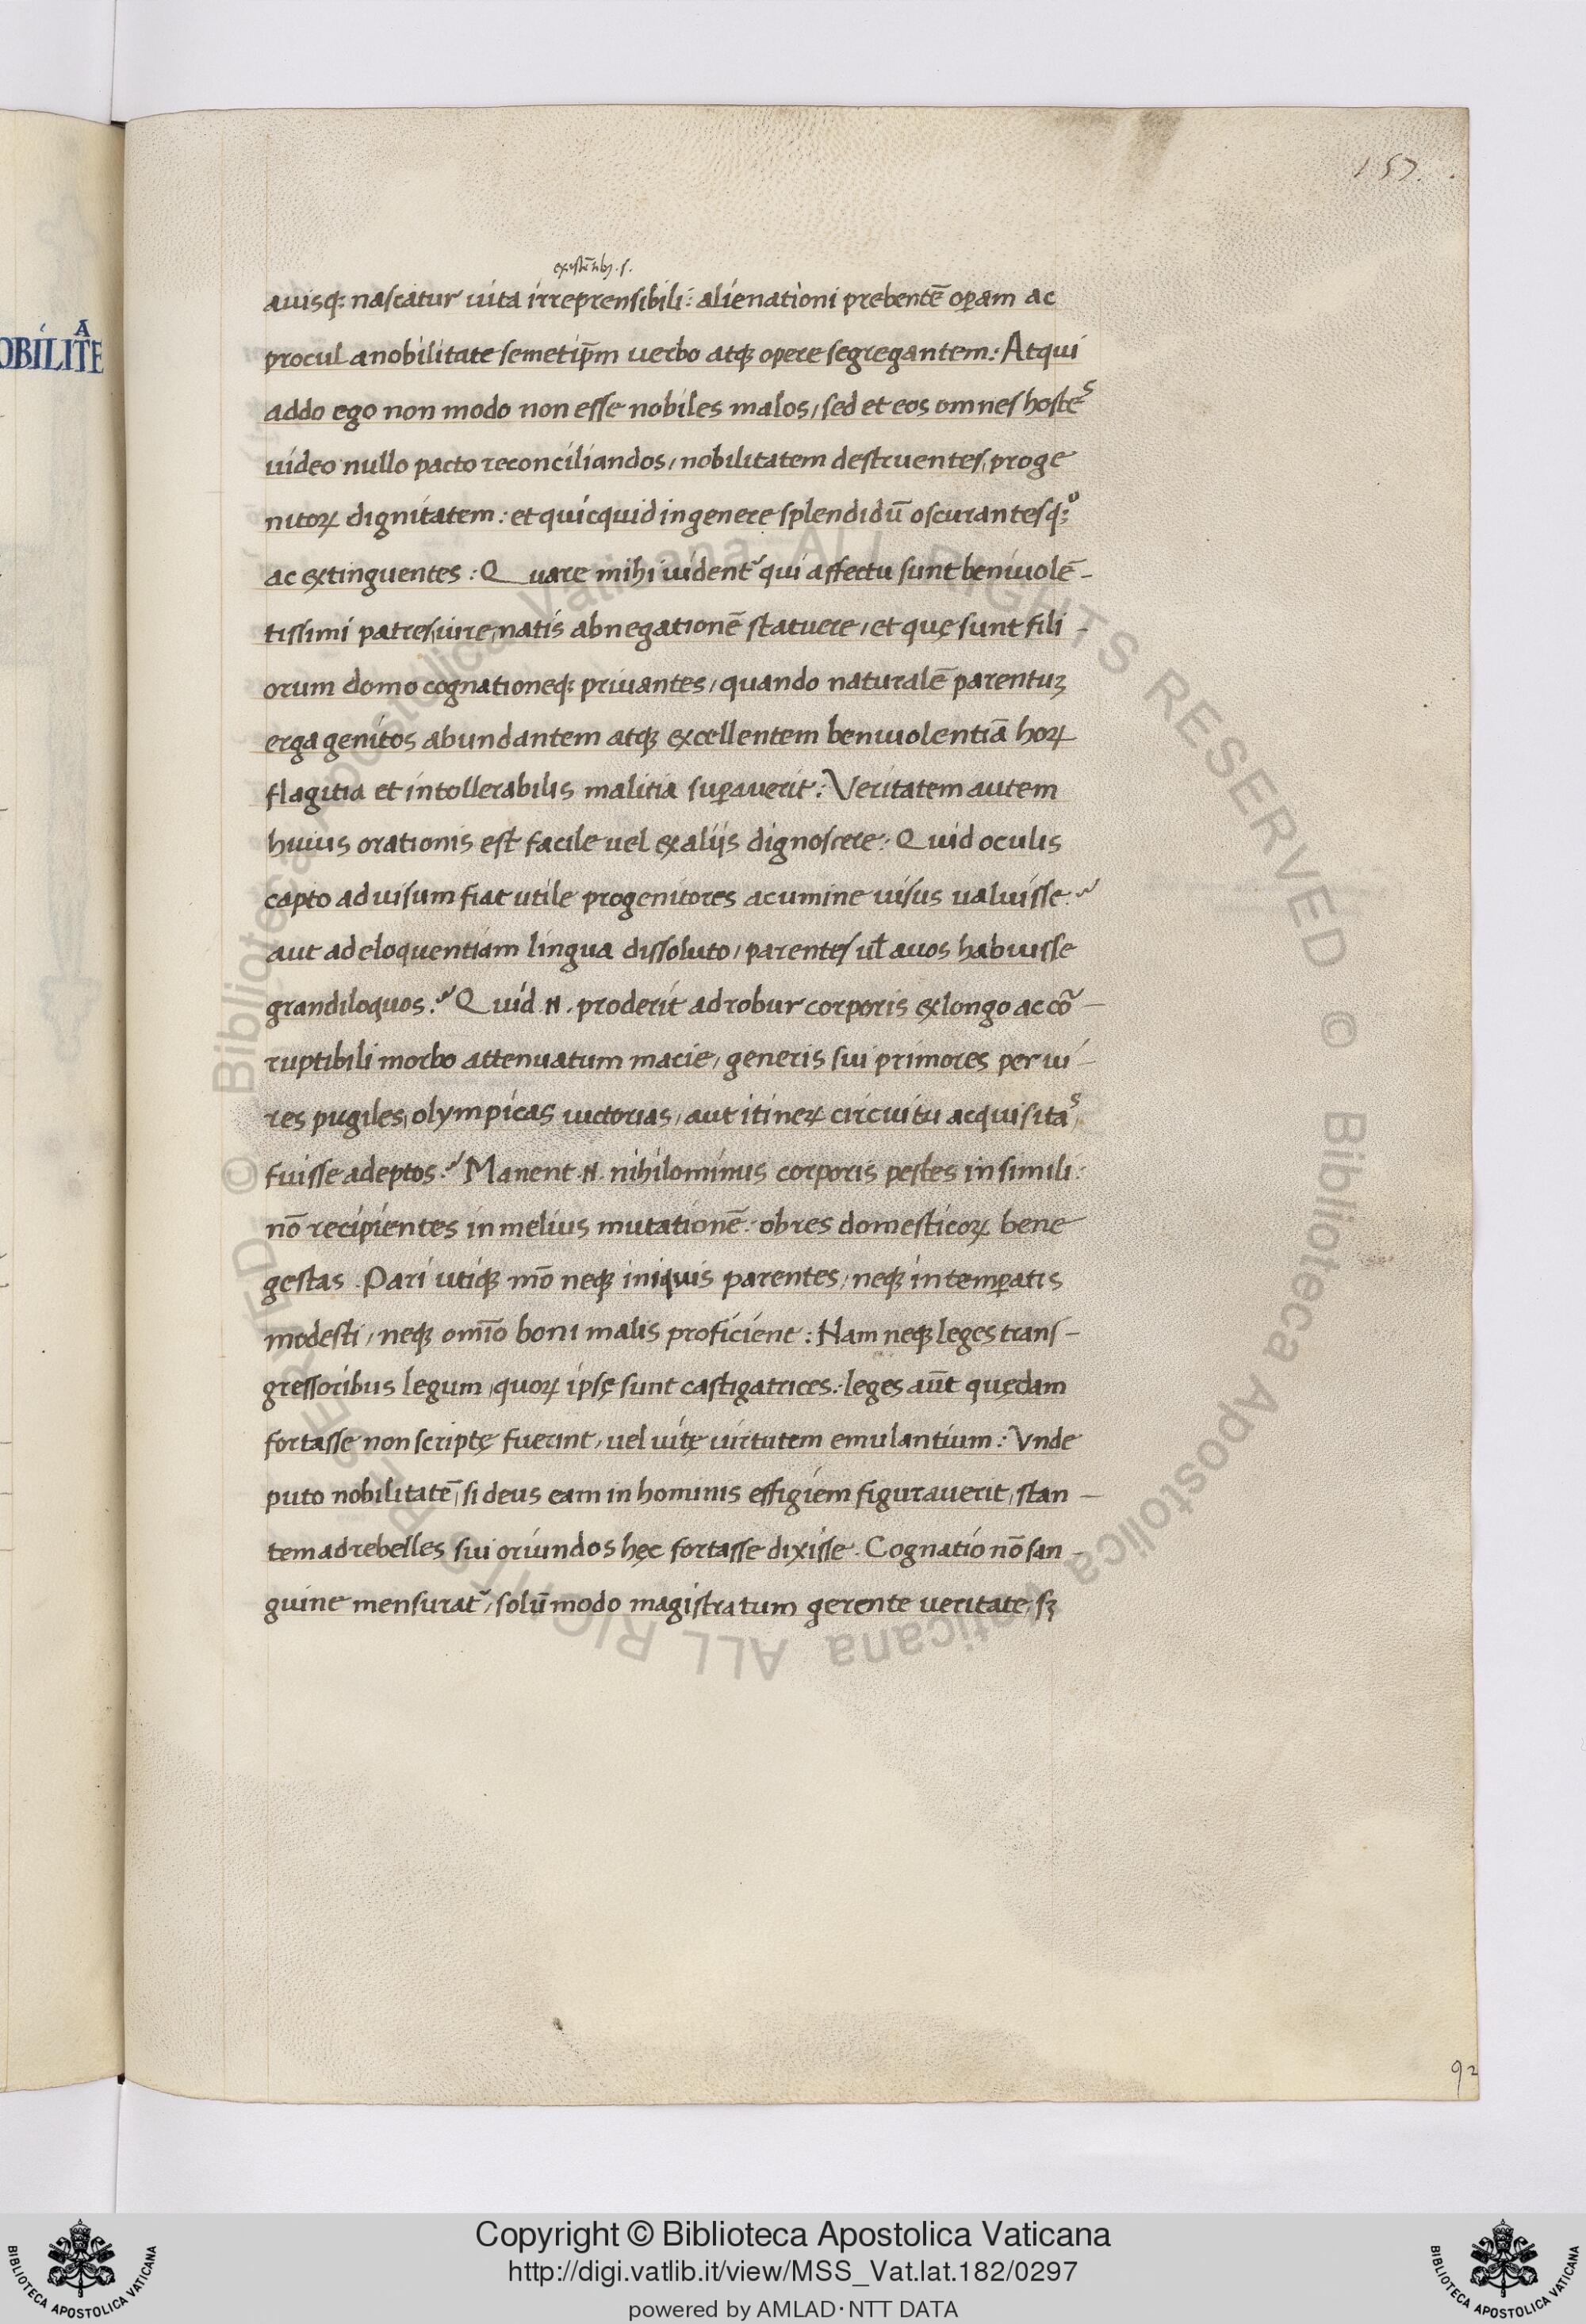 157.
existētibꝫ .s.
auisq; nascatur uita irreprensibili: alienationi prebentē oꝑam ac
OBILITĀTE
procul anobilitate semetip̄m verbo atqꝫ opere segregantem: Atqui
addo ego non modo non esse nobiles malos, sed et eos omnes hostes
uideo nullo pacto reconciliandos, nobilitatem destruentes, proge
nitoꝝ dignitatem: et quicquid in genere splendidū oscurantesq;
ac extinguentes: Quare mihi uident᷑ qui affectu sunt beniuolē-
tissimi patres, iure, natis abnegationē statuere, et quę sunt fili-
orum domo cognationeq; priuantes, quando naturalē parentuꝫ
erga genitos abundantem atqꝫ excellentem beniuolentiā hoꝝ
flagitia et intollerabilis malitia suꝑauerit: Veritatem autem
huius orationis est facile uel ex alijs dignoscere: Quid oculis
capto ad uisum fiat utile progenitores acumine uisus ualuisse?
aut ad eloquentiam lingua dissoluto, parentes ul̄ auos habuisse
grandiloquos? Quid .N. proderit ad robur corporis ex longo ac cō-
ruptibili morbo attenuatum macie, generis sui primores per ui-
res pugiles, olympicas uictorias, aut itineꝝ circuitu acquisitas,
fuisse adeptos? Manent .N. nihilominus corporis pestes in simili:
nō recipientes in melius mutationē: ob res domesticoꝝ bene
gestas. Pari utiqꝫ mō neqꝫ iniquis parentes, neqꝫ intemꝑatis
modesti, neqꝫ omīo boni malis proficient: Nam neqꝫ leges trans-
gressoribus legum, quoꝝ ipsę sunt castigatrices: leges aūt quędam
fortasse non scriptę fuerint, uel uitę uirtutem emulantium: Vnde
puto nobilitatē, si deus eam in hominis effigiem figurauerit, stan-
tem ad rebelles sui oriundos hęc fortasse dixisse. Cognatio nō san-
guine mensurat᷑, solū modo magistratum gerente ueritate, sꝫ
92
Copyright © Biblioteca Apostolica Vaticana
http://digi.vatlib.it/view/MSS_Vat.lat.182/0297
powered by AMLAD·NTT DATA
BIBLIOTECA APOSTOLICA VATICANA
BIBLIOTECA APOSTOLICA VATICANA
© Biblioteca Apostolica Vaticana ALL RIGHTS RESERVED © Biblioteca Apostolica Vaticana ALL RIGHTS RESERVED